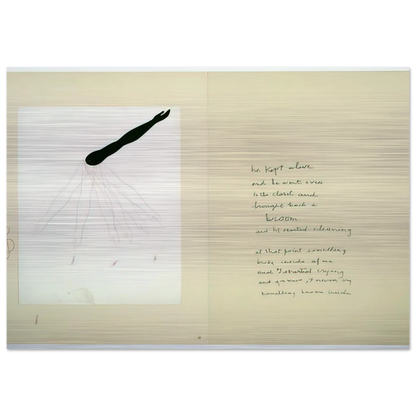 he kept alone
and he went over
to the closet and
brought back a
broom
and he started cleaning
at that point something
broke inside of me
and I started crying
and
something broke inside